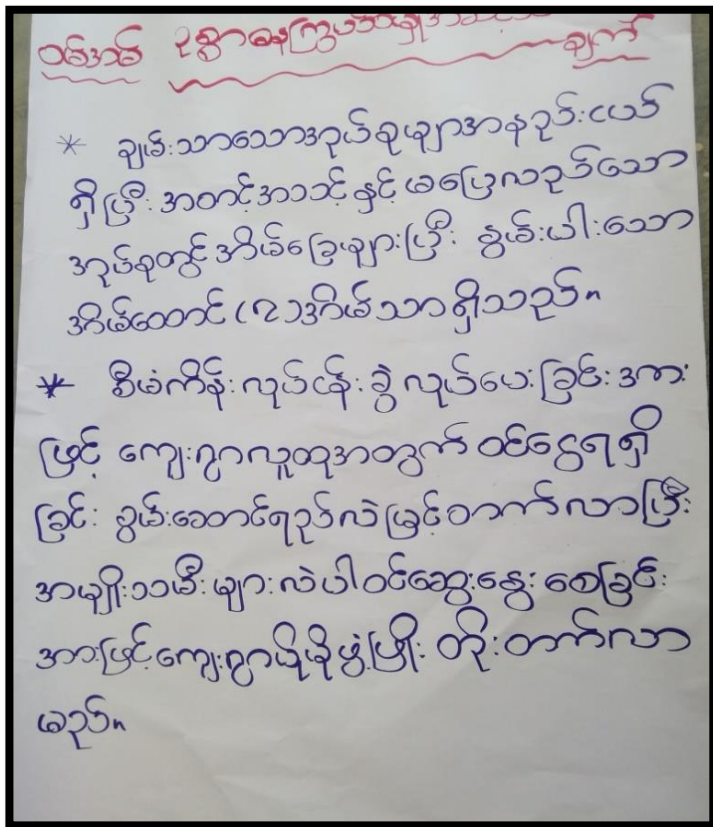 ဝမ်အမ် ဥစ္စာဓနကြွယ်ဝမှု
ချက်
* ချမ်းသာသောအုပ်စုများအနည်းငယ်
ရှိပြီး အတင့်အသင့်နှင့် မပြေလည်သော
အုပ်စုတွင်အိမ်ခြေများပြီး နွမ်းပါးသော
အိမ်ထောင် (၇)အိမ်သာရှိသည်။
* စီမံကိန်းလုပ်ငန်းခွဲလုပ်ပေးခြင်းအား
ဖြင့် ကျေးရွာလူထုအတွက် ဝင်ငွေရရှိ
ခြင်း စွမ်းဆောင်ရည်လဲမြင့်တက်လာပြီး
အမျိုးသမီးများလဲပါဝင်ဆွေးနွေးစေခြင်း
အားဖြင့်ကျေးရွာပိုမိုဖွံ့ဖြိုး တိုးတက်လာ
မည်။